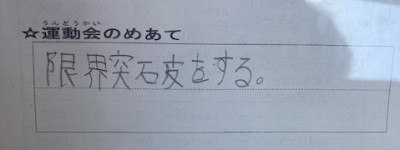 うんどうかい
☆運動会のめあて
限界突破をする。